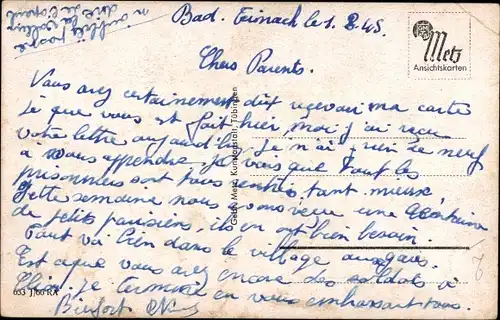 Bad. Teinach le 1. 8. 45.
Metz
Ansichtskarten
Chers Parents.
Vous avez certainement dût recevoir ma carte
que vous est fait hier, moi j'ai reçu
votre lettre aujourd'hui. Je n'ai rien de neuf
à vous apprendre, je vois que tout les
prisonniers sont tous rentrés tant mieux
Cette semaine nous avons reçu une
de petits parisiens, ils en ont bien besoin.
Tout va bien dans le village
Est ce que vous avez encore des soldats à
Je termine en vous embrassant tous.
Bientôt
Gebr. Metz, Kunstanstalt, Tübingen